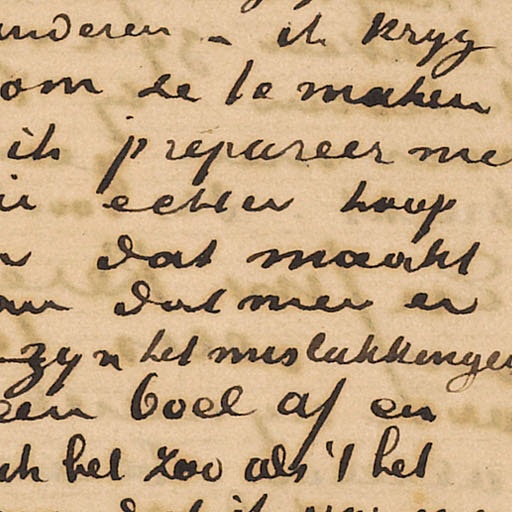 anderen – ik kryg
om ze te maken
ik prepareer me
echter hoop
dat maakt
dat men er
zyn het mislukkingen
een boel af en
ook het zoo als 't het
dat ik